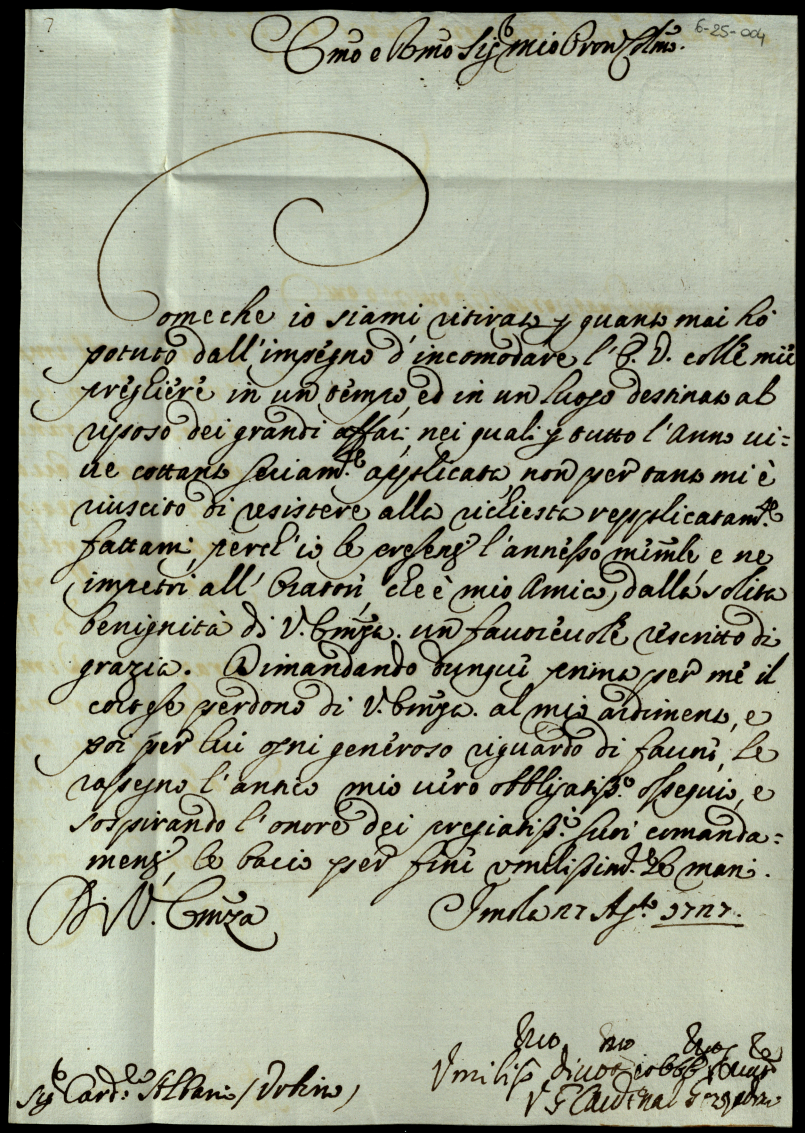 6-25-004
Emo e Rmo Sig.r mio Pron Colmo.
Comeche io siami ritirato p quanto mai hò
potuto dall'impegno d'incomodare l'E. V. colle mie
preghiere in un tempo, ed in un luogo destinato al
riposo dei grandi affari, nei quali p tutto l'Anno vi=
ve cottanto seriam.te applicata, non per tanto mi è
riuscito di resistere alla richiesta repplicatam.te
fattami, perch'io le presenti l'annesso mimle e ne
impetri all'Oratore, che è mio Amico, dalla solita
benignità di V. Emza. un favorevole rescritto di
grazia. Dimandando dunque prima per me il
cortese perdono di V. Emza. al mio ardimento, e
poi per lui ogni generoso riguardo di favore, le
rassegno l'antico mio vero obbligatiss.o ossequio, e
sospirando l'onore dei pregiatiss.i suoi comanda=
menti, le bacio per fine umilissimam.te le mani.
Di V. Emza Imola 27 Ag.to 1727.
Umiliss.mo divot.mo
Sig.r Card.le Albani (Urbino)
V F Cardinal